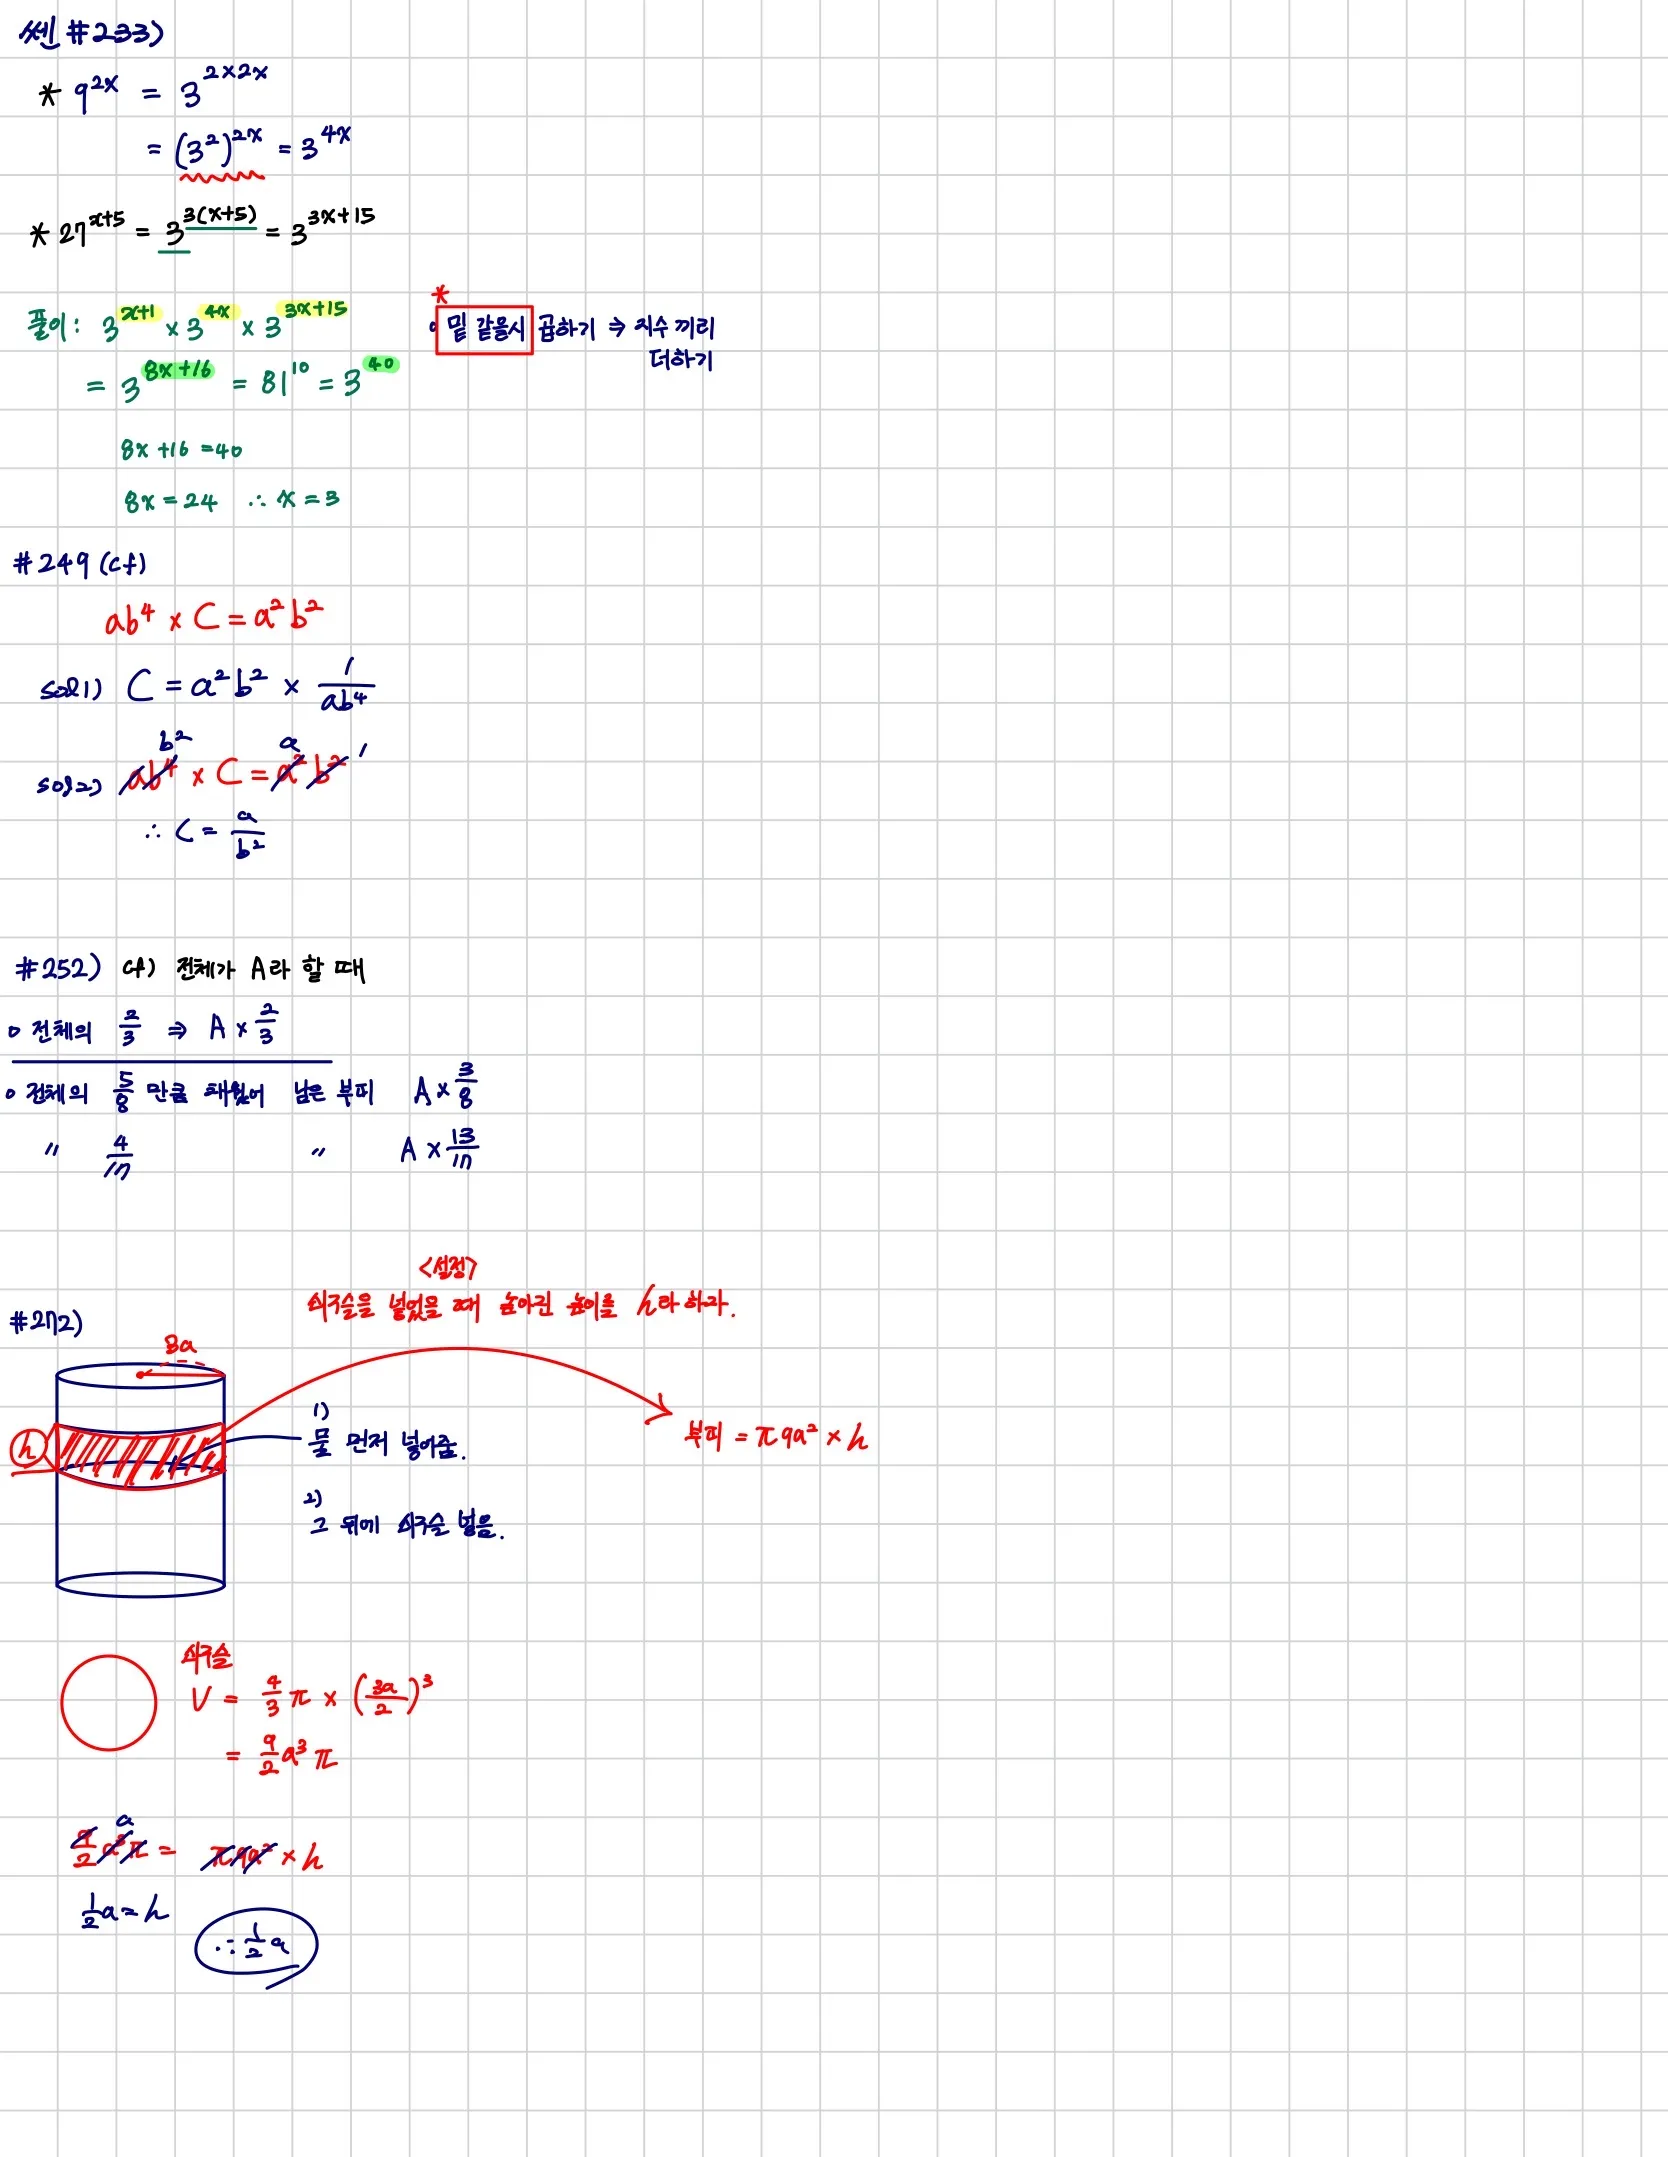 쎈 #233)
* 9^{2x} = 3^{2×2x}
= (3^2)^{2x} = 3^{4x}
* 27^{x+5} = 3^{3(x+5)} = 3^{3x+15}
풀이: 3^{x+1} × 3^{4x} × 3^{3x+15}
*
밑 같을시 곱하기 ⇒ 지수 끼리
더하기
= 3^{8x+16} = 81^{10} = 3^{40}
8x+16 = 40
8x = 24 ∴ x = 3
#249 (cf)
ab^4 × C = a^2b^2
sol1) C = a^2b^2 × 1/ab^4
b^2 a 1
sol2) ab^4 × C = a^2b^2
∴ C = a/b^2
#252) cf) 전체가 A라 할 때
o 전체의 2/3 ⇒ A × 2/3
o 전체의 5/8 만큼 채웠어 남은 부피 A × 3/8
〃 4/17 〃 A × 13/17
<설정>
쇠구슬을 넣었을 때 높아진 높이를 h라 하자.
#272)
3a
h
1)
물 먼저 넣어줌.
부피 = π9a^2 × h
2)
그 뒤에 쇠구슬 넣음.
쇠구슬
V = 4/3 π × (3a/2)^3
= 9/2 a^3 π
a
9/2 a^3 π = π9a^2 × h
1/2 a = h
∴ 1/2 a